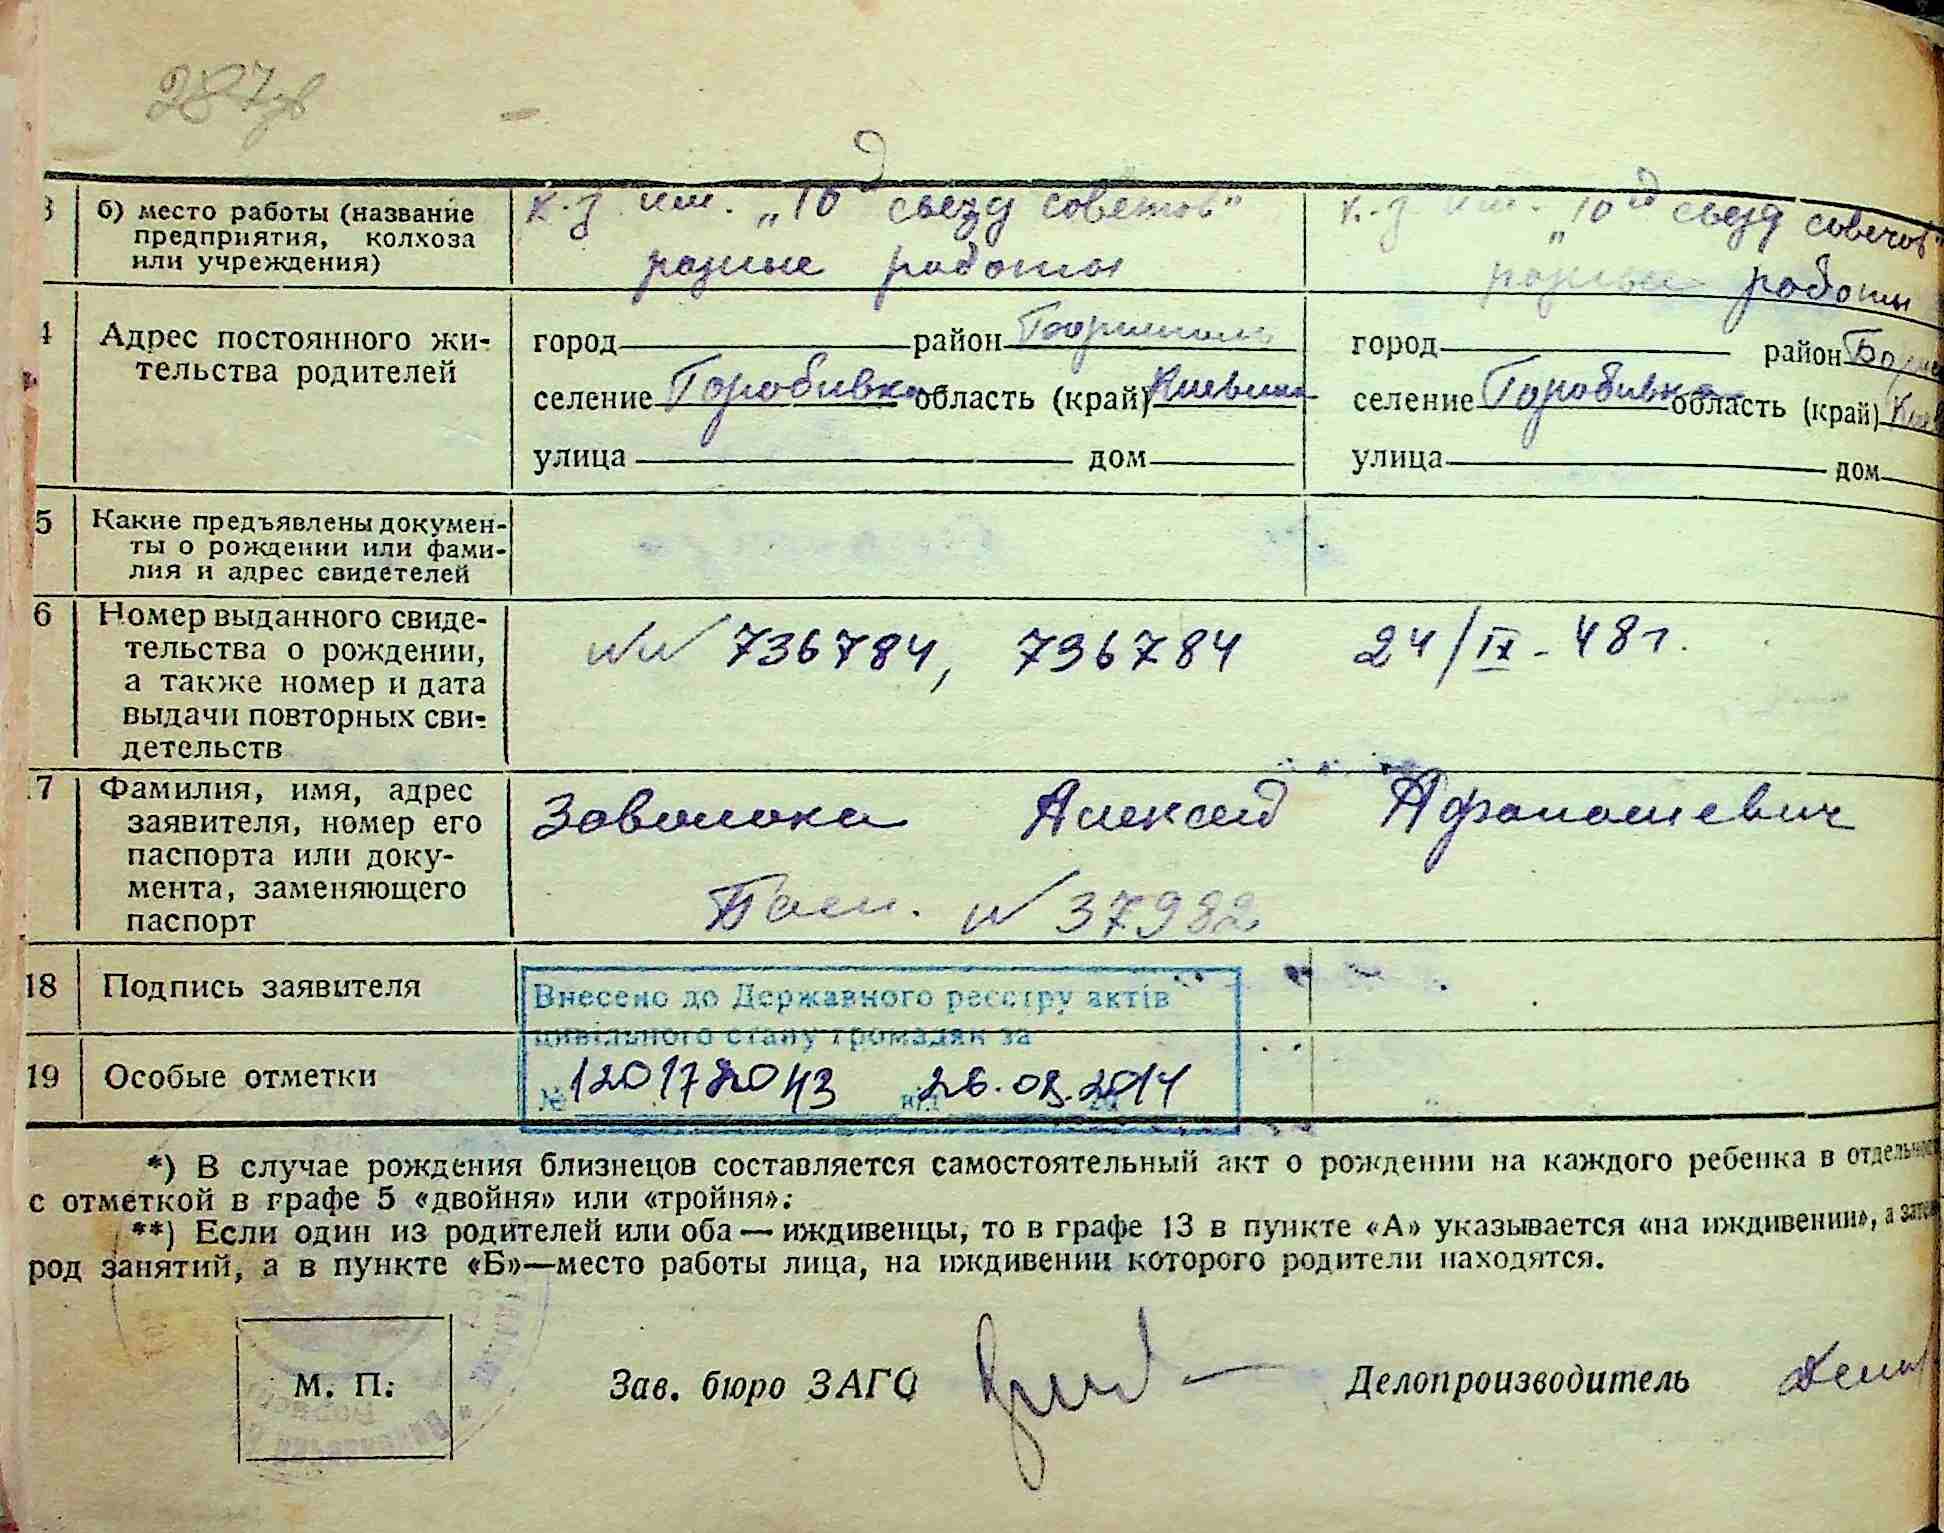 287зв
3 б) место работы (название предприятия, колхоза или учреждения)
к-з им. „10й съезд советов"
разные работы
к-з им. „10й съезд советов"
разные работы
4 Адрес постоянного жи-
тельства родителей
город район
селение область (край)
улица дом
город район
селение область (край)
улица дом
5 Какие предъявлены докумен-
ты о рождении или фами-
лия и адрес свидетелей
6 Номер выданного свиде-
тельства о рождении,
а также номер и дата
выдачи повторных сви-
детельств
№№ 736784, 736784 24/IX - 48 г.
17 Фамилия, имя, адрес
заявителя, номер его
паспорта или доку-
мента, заменяющего
паспорт
Заволока Алексей Афанасиевич
№ 37982
18 Подпись заявителя
Внесено до Державного реєстру актів
цивільного стану громадян за
19 Особые отметки
№ від 26.08.2014
*) В случае рождения близнецов составляется самостоятельный акт о рождении на каждого ребенка в отдельности
с отметкой в графе 5 «двойня» или «тройня».
**) Если один из родителей или оба — иждивенцы, то в графе 13 в пункте «А» указывается «на иждивении», а затем
род занятий, а в пункте «Б»—место работы лица, на иждивении которого родители находятся.
М. П.
Зав. бюро ЗАГС Делопроизводитель